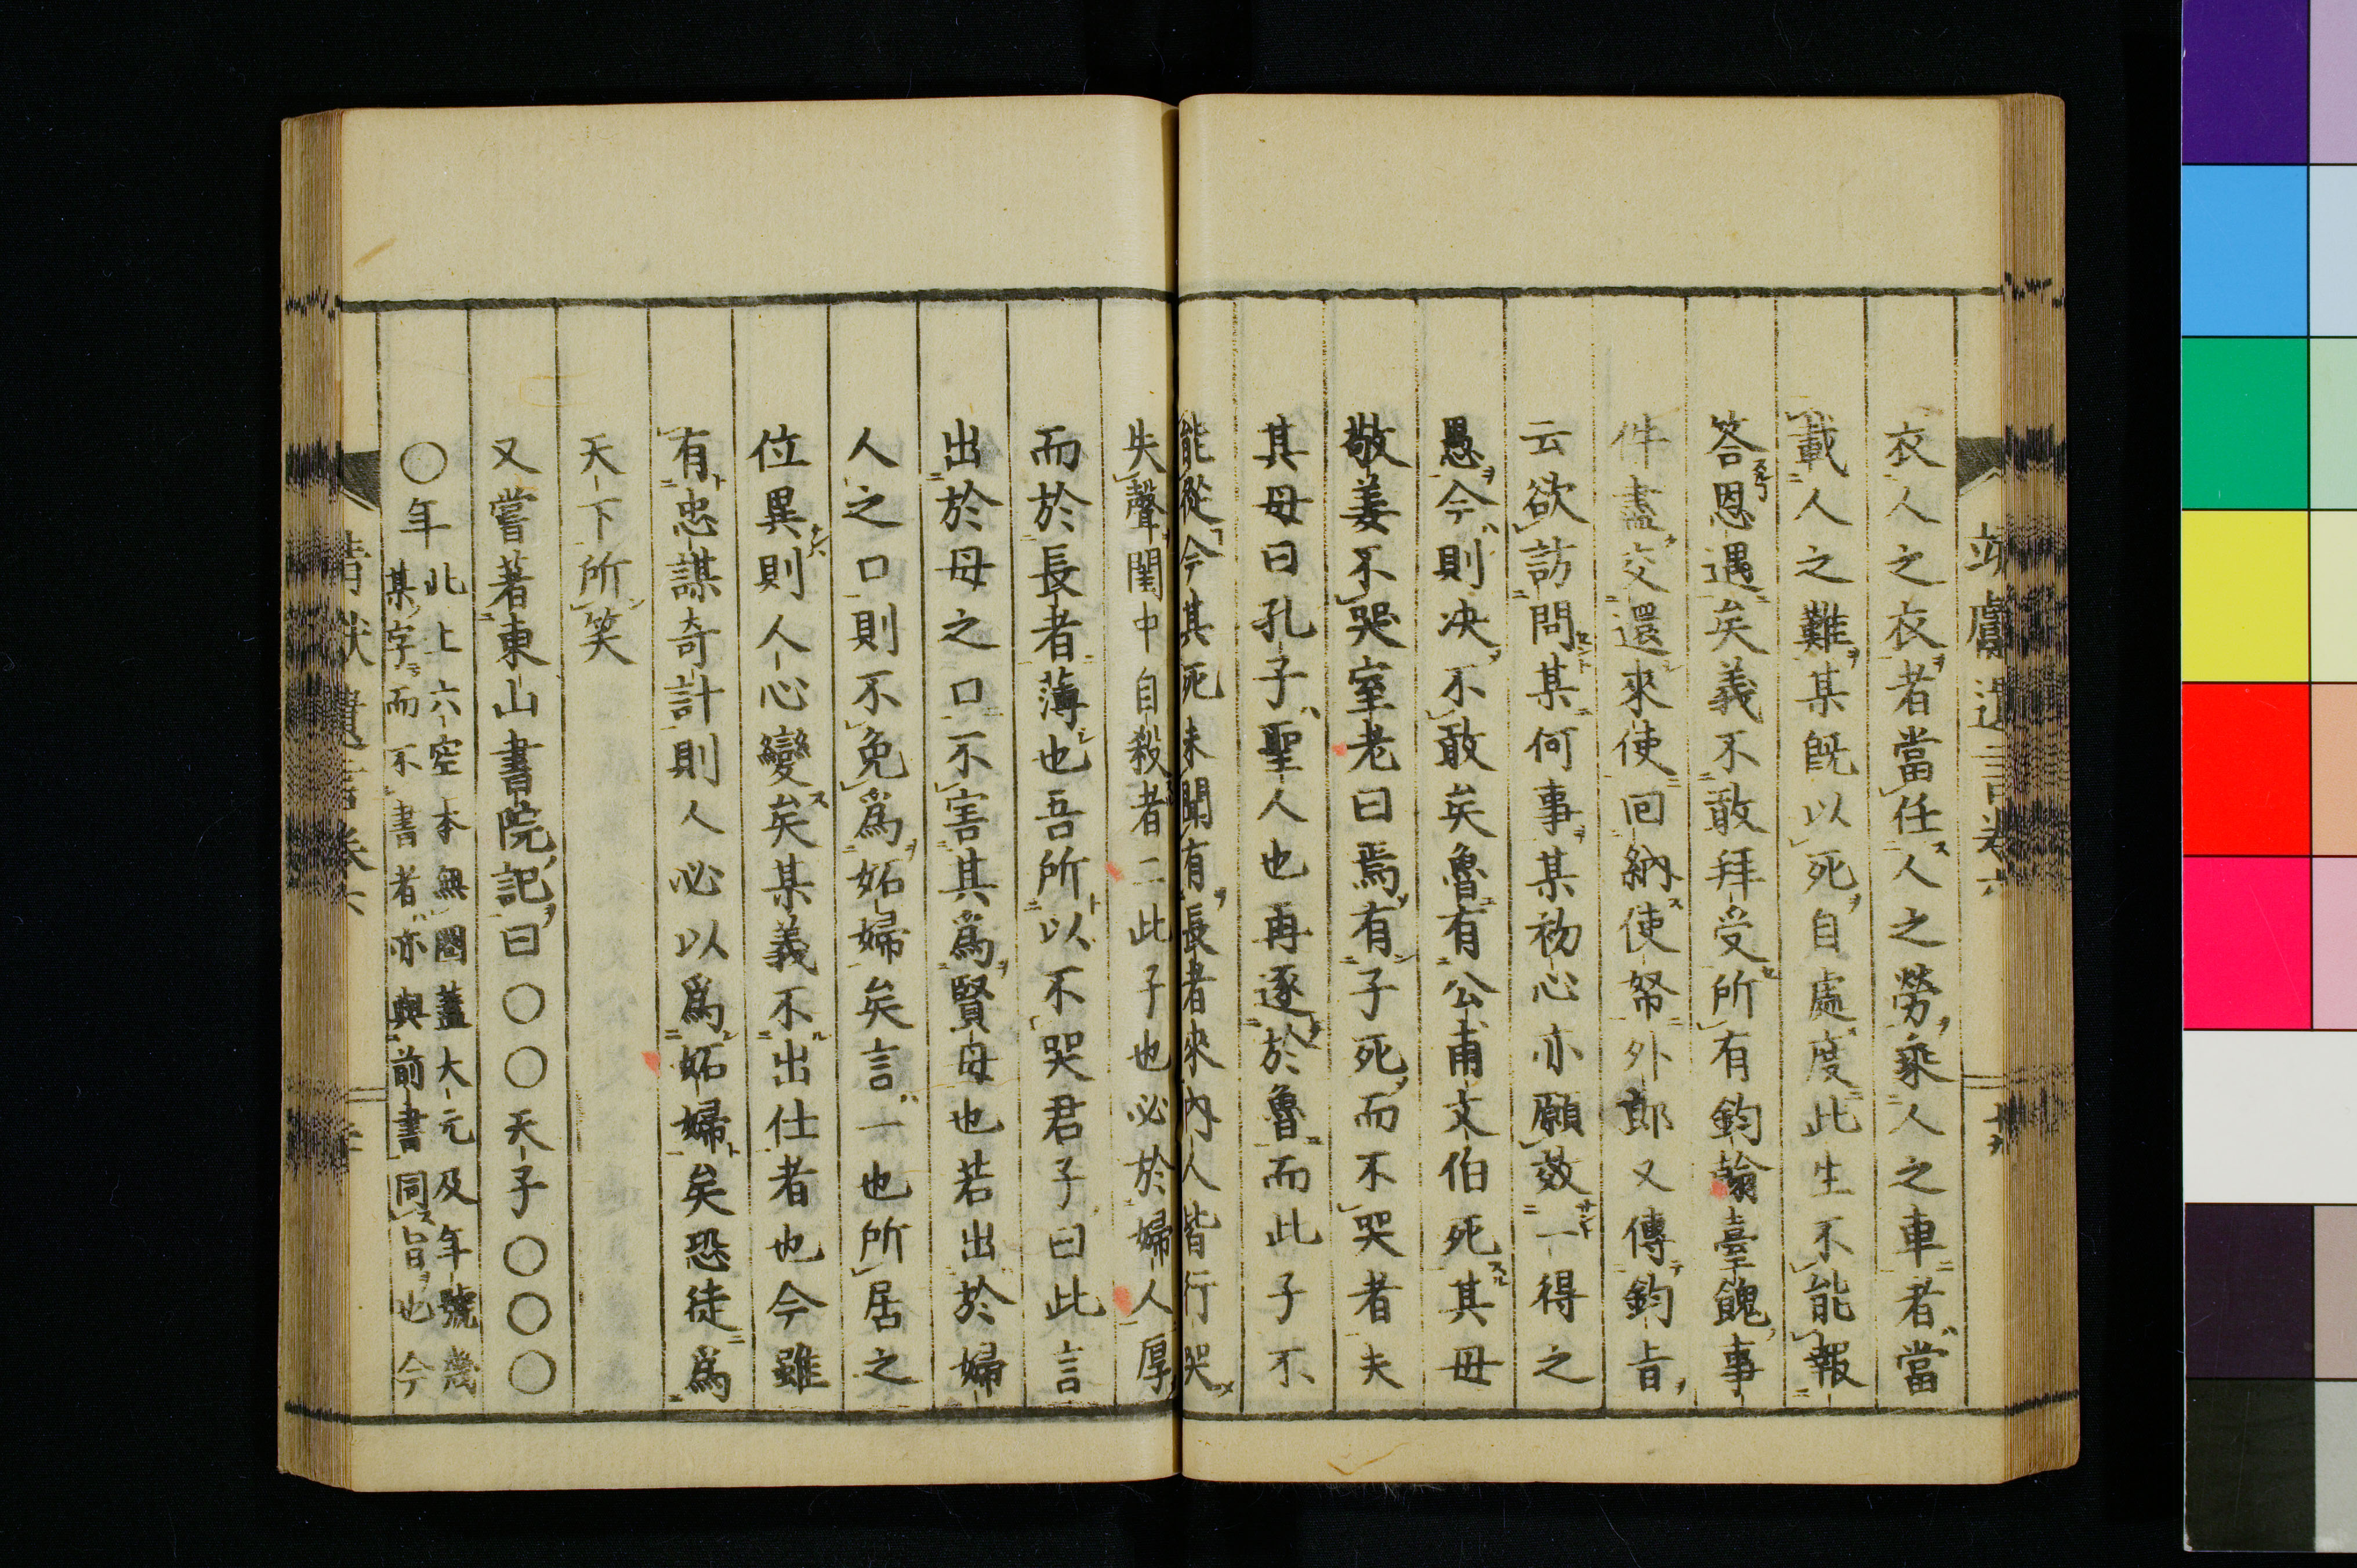 衣人之衣者當任人之勞乘人之車者當
載人之難某既以死自處度此生不能報
答恩遇矣義不敢拜受所有鈞翰臺餽事
件盡交還來使回納使帑外郎又傳鈞旨
云欲訪問某何事某初心亦願效一得之
愚今則决不敢矣魯有公甫文伯死其母
敬姜不哭室老曰焉有子死而不哭者夫
其母曰孔子聖人也再逐於魯而此子不
能從今其死未聞有長者來内人皆行哭
失聲閨中自殺者二此子也必於婦人厚
而於長者薄也吾所以不哭君子曰此言
出於母之口不害其爲賢母也若出於婦
人之口則不免爲妬婦矣言一也所居之
位異則人心變矣某義不出仕者也今雖
有忠謀奇計則人必以爲妬婦矣恐徒爲
天下所笑
又嘗著東山書院記曰〇〇天子〇〇〇
〇年此上六空本無圈蓋大元及年號幾
某字而不書者亦與前書同旨也今